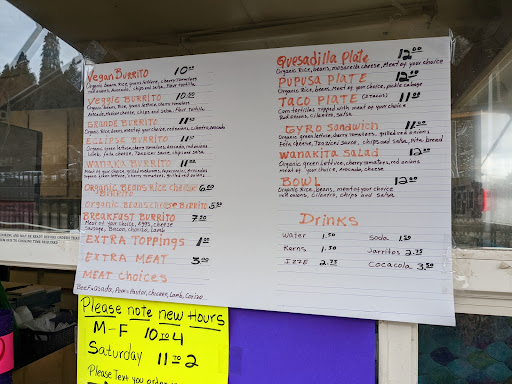 Vegan Burrito 10.00
Organic Beans, Rice, green lettuce, cherry tomatoes
red onions, Avocado, chips and salsa. Flour tortilla
Veggie Burrito 10.00
Organic Beans, Rice, green lettuce, cherry tomatoes
Avocado, cheese, chips and salsa. Flour tortilla
Grande Burrito 11.00
Organic Rice, beans, meat of your choice, red onions, cilantro, avocado
Eclipse Burrito 11.00
Organic green lettuce, cherry tomatoes, avocado, red onions
Lamb, feta cheese, Tzaziki sauce, chips and salsa
Wanaka Burrito 11.00
Meat of your choice, grilled
Organic Beans Rice cheese Burrito 6.00
Organic Beans cheese Burrito 5.00
Breakfast Burrito 7.50
Meat of your choice, eggs, cheese
Sausage, Bacon, chorizo, Lamb
Extra Toppings 1.00
Extra Meat 3.00
Meat Choices
Beef=Asada, Pork=Pastor, chicken, Lamb, Chorizo
Quesadilla Plate 12.00
Organic Rice, beans, mozzarella cheese, Meat of your choice
Pupusa Plate 12.00
Organic Rice, beans, Meat of your choice, pickle cabbage
Taco Plate 11.00
Corn tortillas topped with meat of your choice
Red onions, cilantro, salsa
Gyro Sandwich 11.50
Organic green lettuce, cherry tomatoes, grilled red onions
Feta cheese, Tzaziki sauce, chips and salsa, pita bread
Wanakita Salad 12.00
Organic green lettuce, cherry tomatoes, red onions
Meat of your choice, Avocado, cheese
Bowl 12.00
Organic Rice, beans, meat of your choice
red onions, Cilantro, chips and salsa
Drinks
Water 1.50 Soda 1.50
Kerns 1.50 Jarritos 2.75
IZZE 2.75 Cocacola 3.50
Please note new Hours
M-F 10 to 4
Saturday 11 to 2
Please Text you order